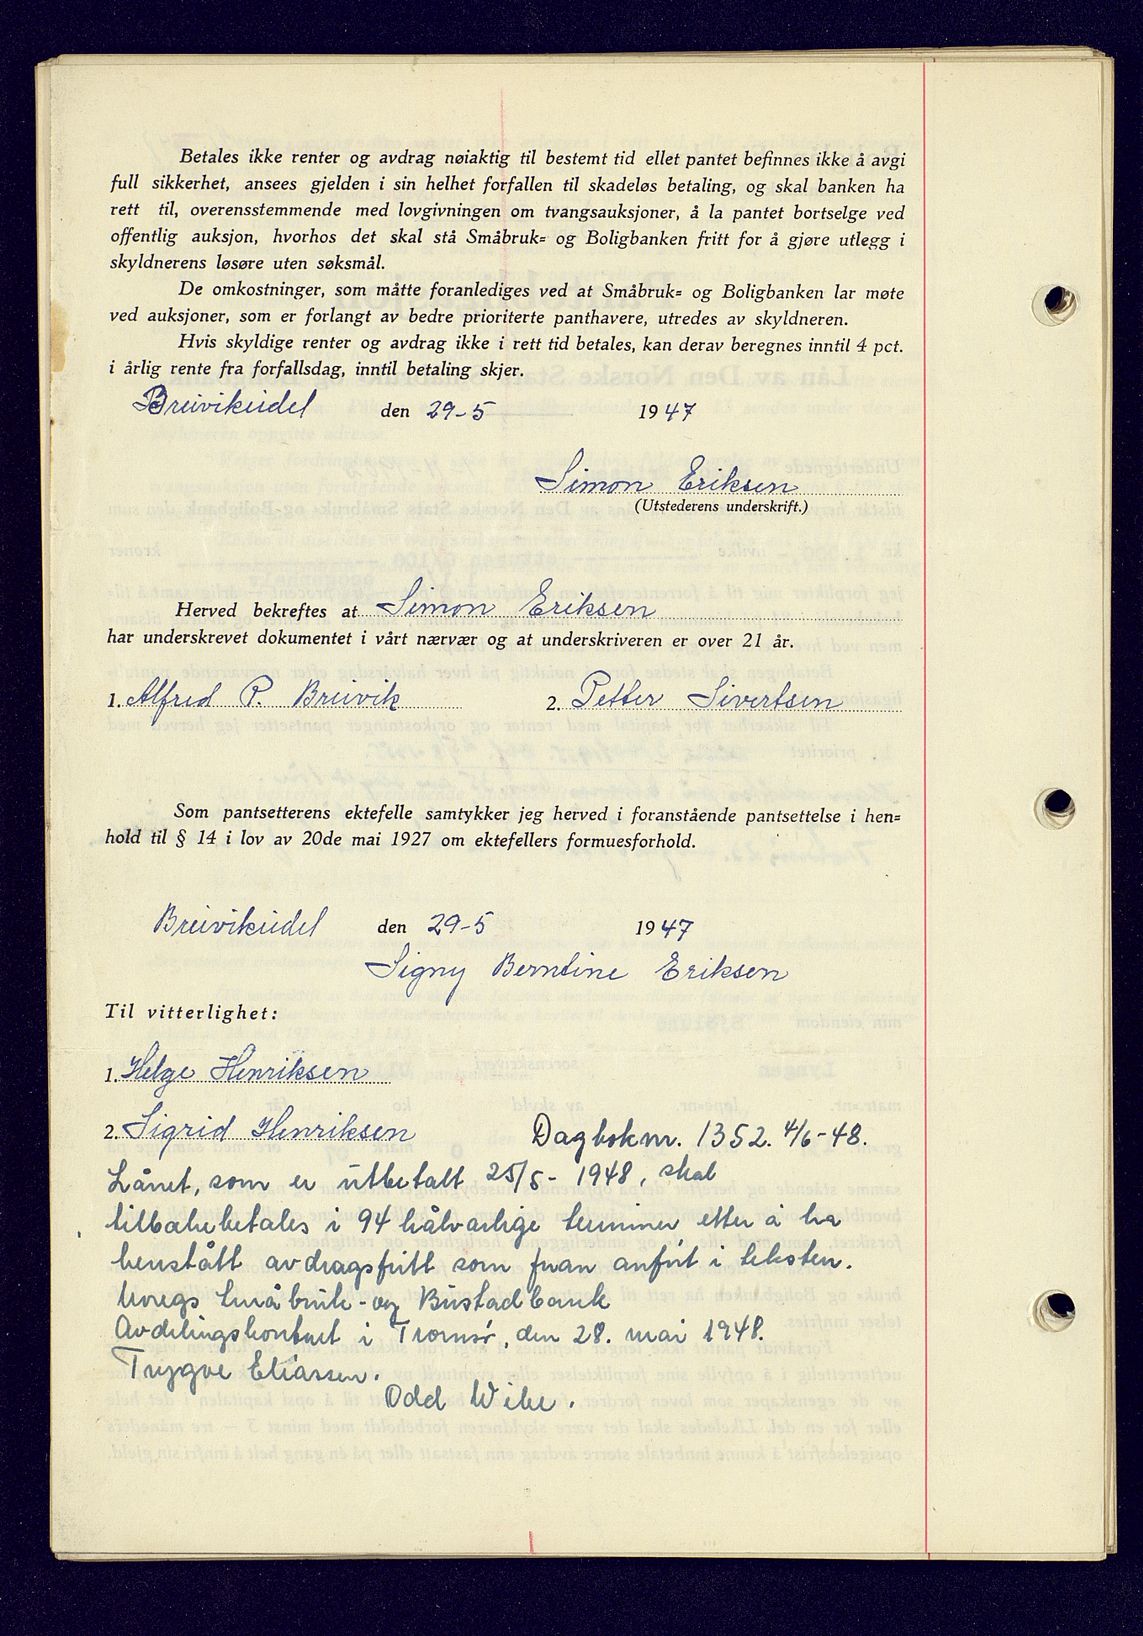 Betales ikke renter og avdrag nøiaktig til bestemt tid ellet pantet befinnes ikke å avgi
full sikkerhet, ansees gjelden i sin helhet forfallen til skadeløs betaling, og skal banken ha
rett til, overensstemmende med lovgivningen om tvangsauksjoner, å la pantet bortselge ved
offentlig auksjon, hvorhos det skal stå Småbruk= og Boligbanken fritt for å gjøre utlegg i
skyldnerens løsøre uten søksmål.
De omkostninger, som måtte foranlediges ved at Småbruk= og Boligbanken lar møte
ved auksjoner, som er forlangt av bedre prioriterte panthavere, utredes av skyldneren.
Hvis skyldige renter og avdrag ikke i rett tid betales, kan derav beregnes inntil 4 pct.
i årlig rente fra forfallsdag, inntil betaling skjer.
Breivikeidet den 29-5 1947
Simon Eriksen
(Utstederens underskrift.)
Herved bekreftes at Simon Eriksen
har underskrevet dokumentet i vårt nærvær og at underskriveren er over 21 år.
1. Alfred P. Breivik 2. Petter Sivertsen
Som pantsetterens ektefelle samtykker jeg herved i foranstående pantsettelse i hen=
hold til § 14 i lov av 20de mai 1927 om ektefellers formuesforhold.
Breivikeidet den 29-5 1947
Signy Berntine Eriksen
Til vitterlighet:
1. Helge Henriksen
2. Sigrid Henriksen Dagboknr. 1352. 4/6-48.
Lånet, som er utbetalt 25/5 - 1948, skal
tilbakebetales i 94 halvårlige terminer etter å ha
henstått avdragsfritt som foran anført i teksten.
Noregs Småbruk- og Bustadbank
Avdelingskontoret i Tromsø, den 28. mai 1948.
Trygve Eliassen.
Odd Wibe.